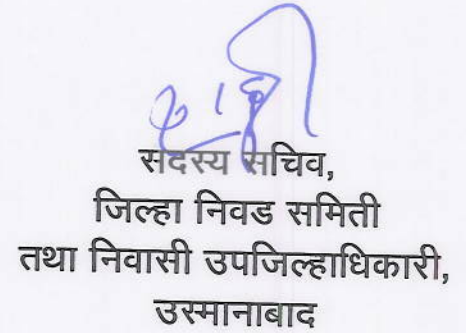 सदस्य सचिव,
जिल्हा निवड समिती
तथा निवासी उपजिल्हाधिकारी,
उस्मानाबाद